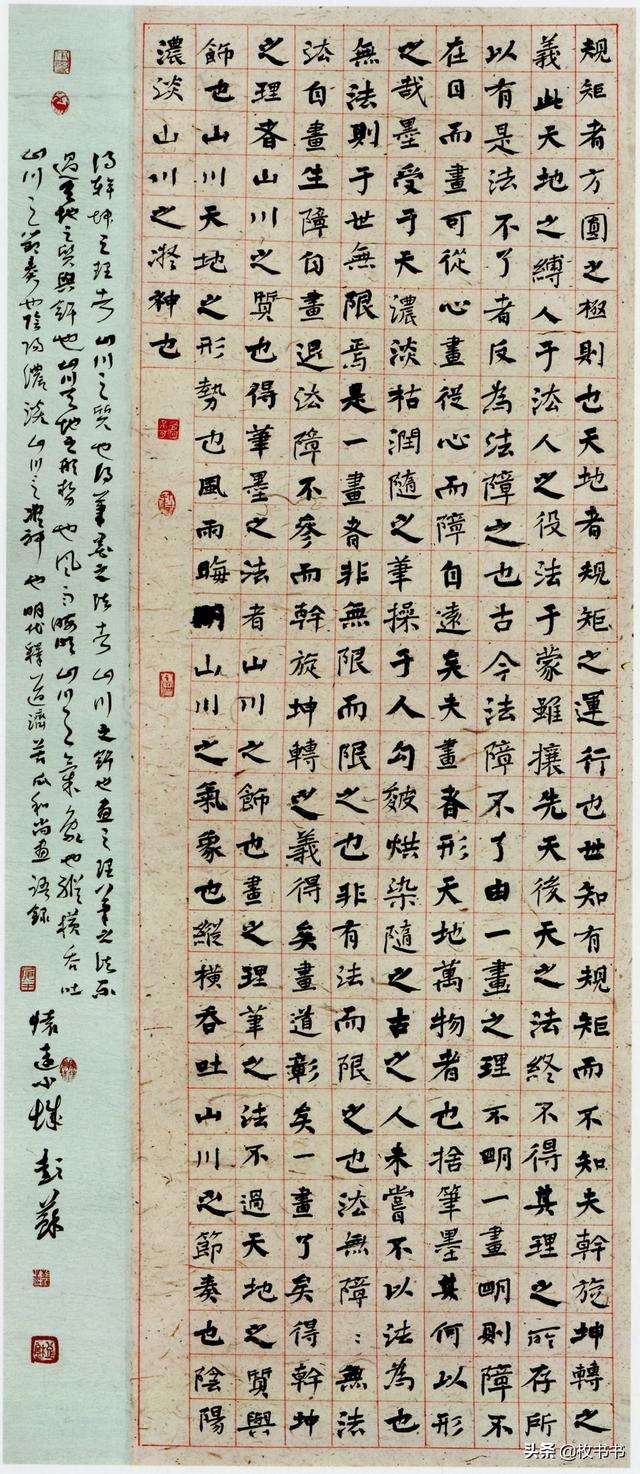 規矩者方圓之極則也天地者規矩之運行也世知有規矩而不知夫幹旋坤轉之
義此天地之縛人于法人之役法于蒙雖攘先天後天之法終不得其理之所存所
以有是法不了者反為法障之也古今法障不了由一畫之理不明一畫明則障不
在目而畫可從心畫從心而障自遠矣夫畫者形天地萬物者也捨筆墨其何以形
之哉墨受于天濃淡枯潤隨之筆操于人勾皴烘染隨之古之人未嘗不以法為也
無法則于世無限焉是一畫者非無限而限之也非有法而限之也法無障:無法
法自畫生障自畫退法障不參而幹旋坤轉之義得矣畫道彰矣一畫了矣得幹坤
之理者山川之質也得筆墨之法者山川之飾也畫之理筆之法不過天地之質與
飾也山川天地之形勢也風雨晦明山川之氣象也縱橫吞吐山川之節奏也陰陽
濃淡山川之凝神也
得幹坤之理者山川之質也得筆墨之法者山川之飾也畫之理筆之法不
過天地之質與飾也山川天地之形勢也風雨晦明山川之氣象也縱橫吞吐
山川之節奏也陰陽濃淡山川之凝神也明代釋道濟苦瓜和尚畫語錄
懷遠小城彭蘇
头条 @枚书书